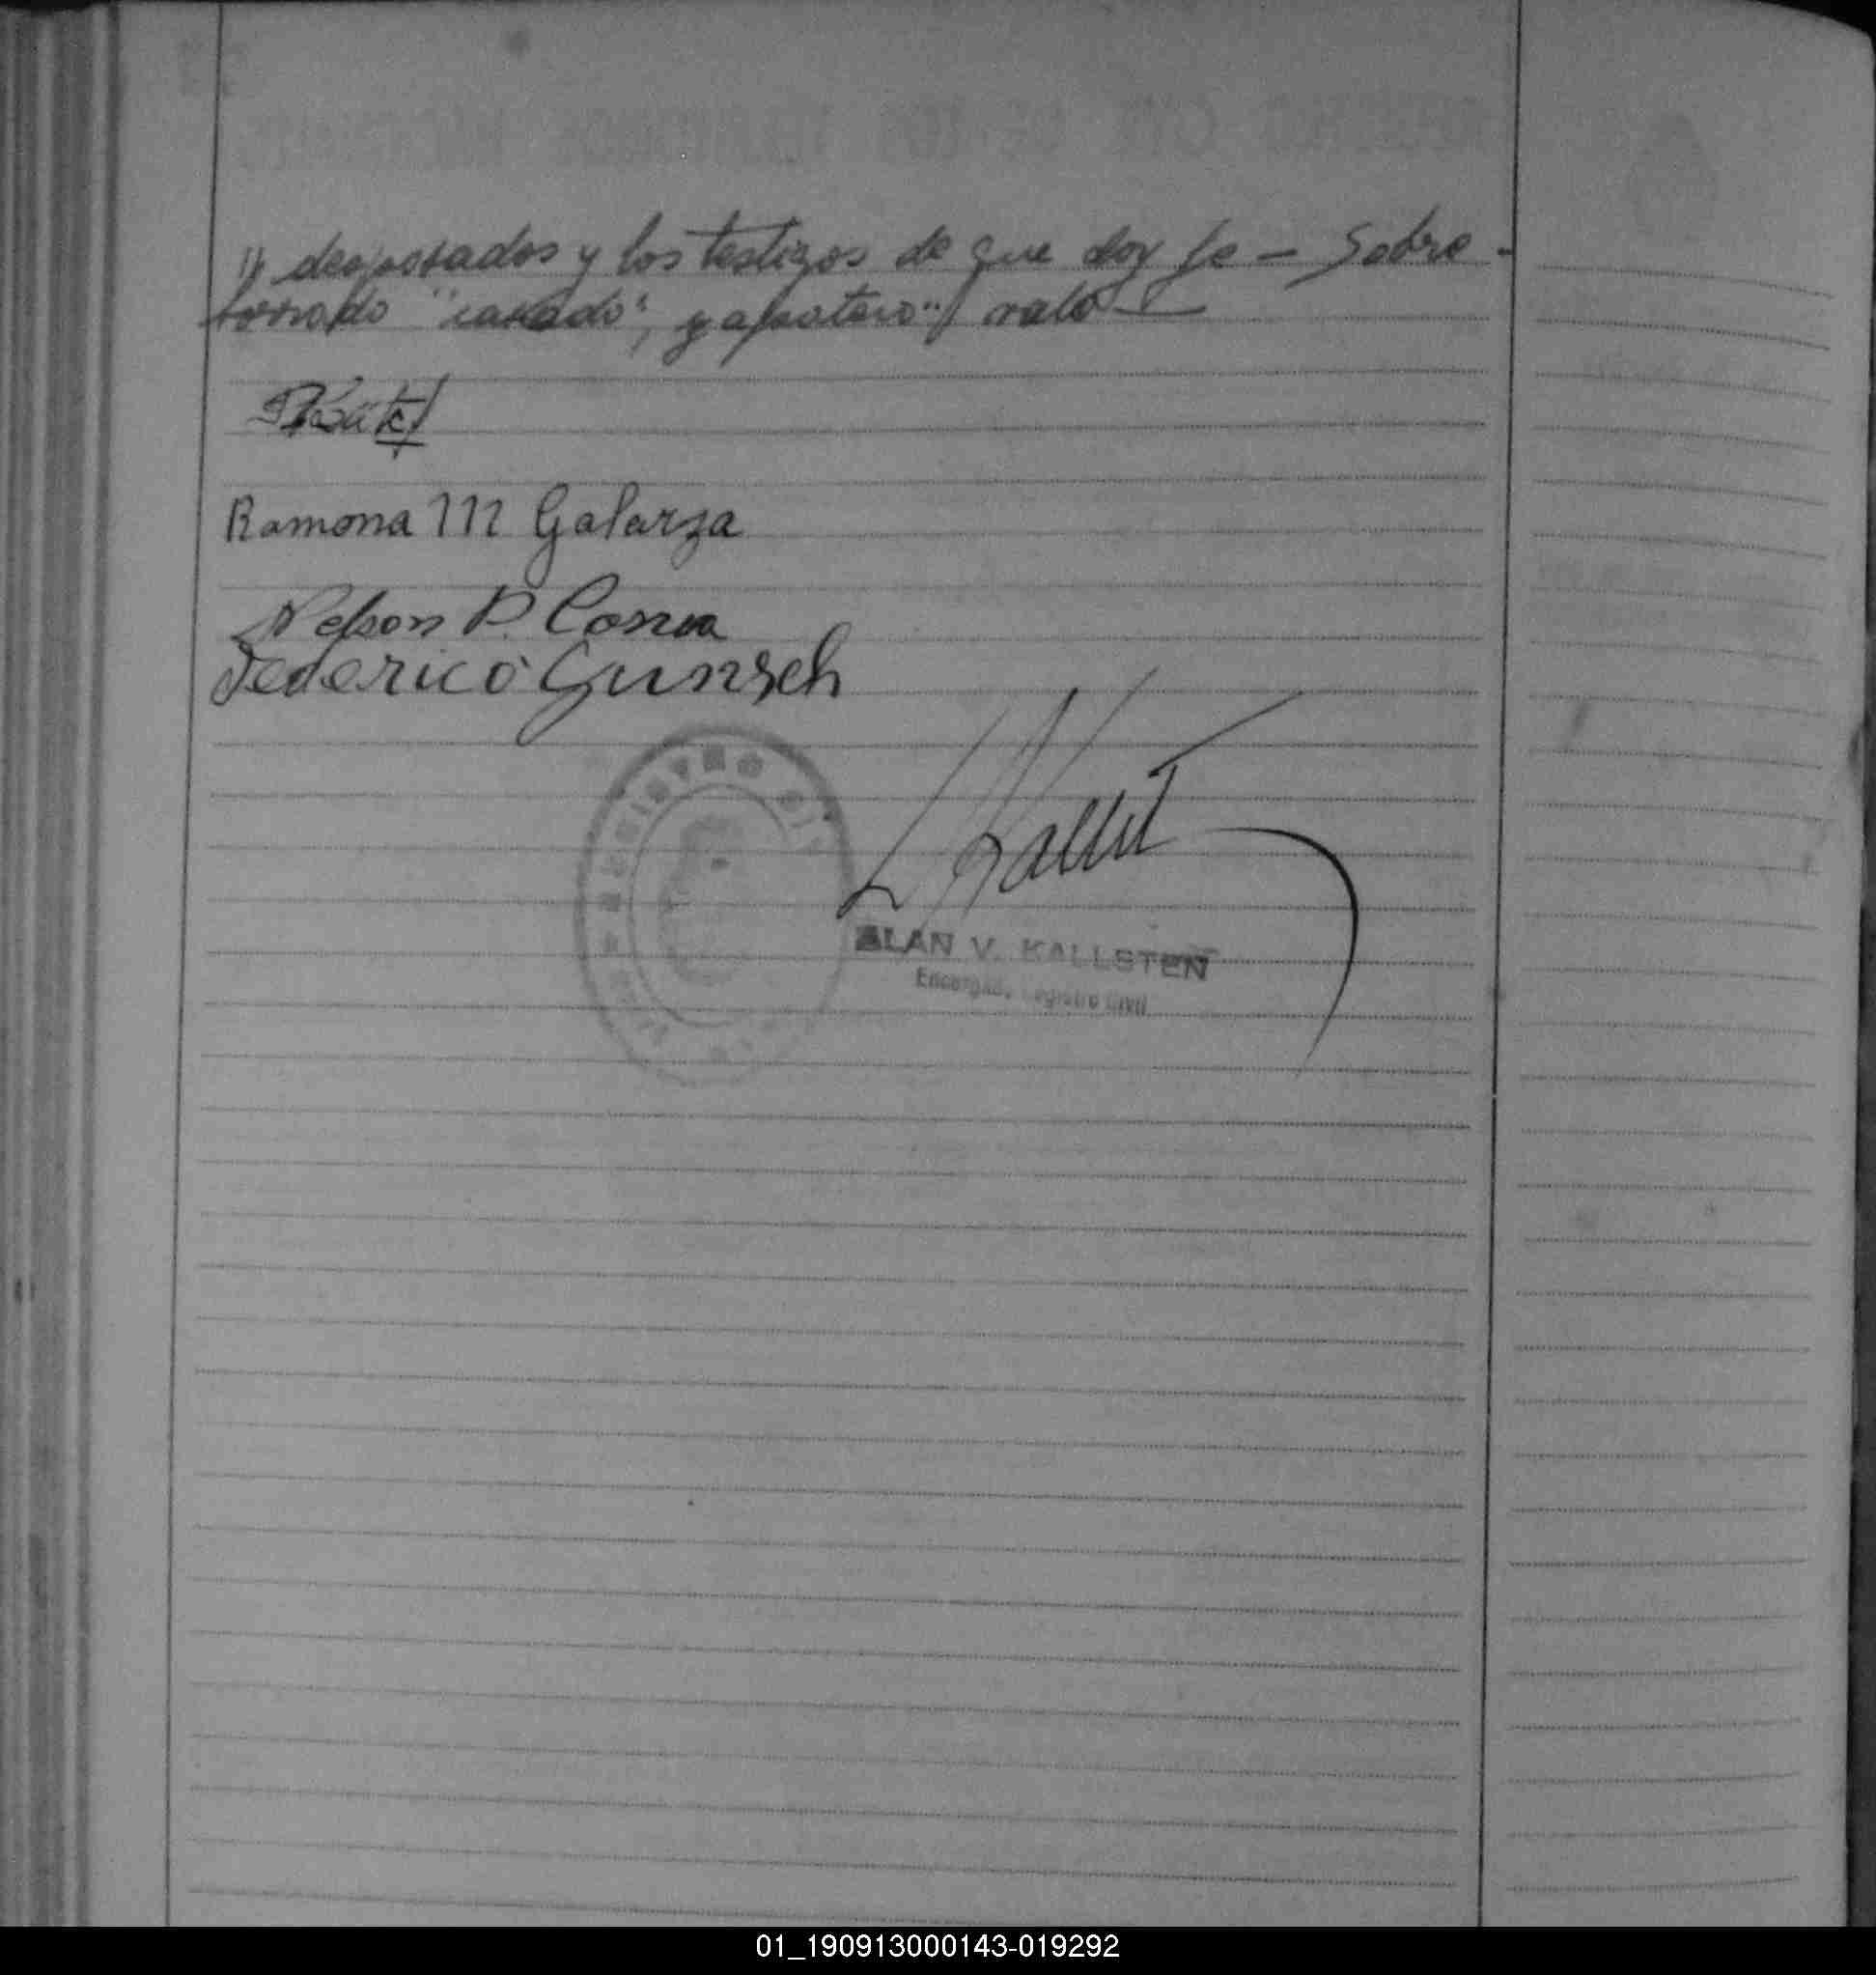 desposados y los testigos de que doy fe - Sobre-
borrado "casado", zapatero" / vale
Ramona M Galarza
Nelson P. Correa
Federico Gunsch
REGISTRO CIVIL
ALAN V. KALLSTEN
Encargado Registro Civil
01_190913000143-019292